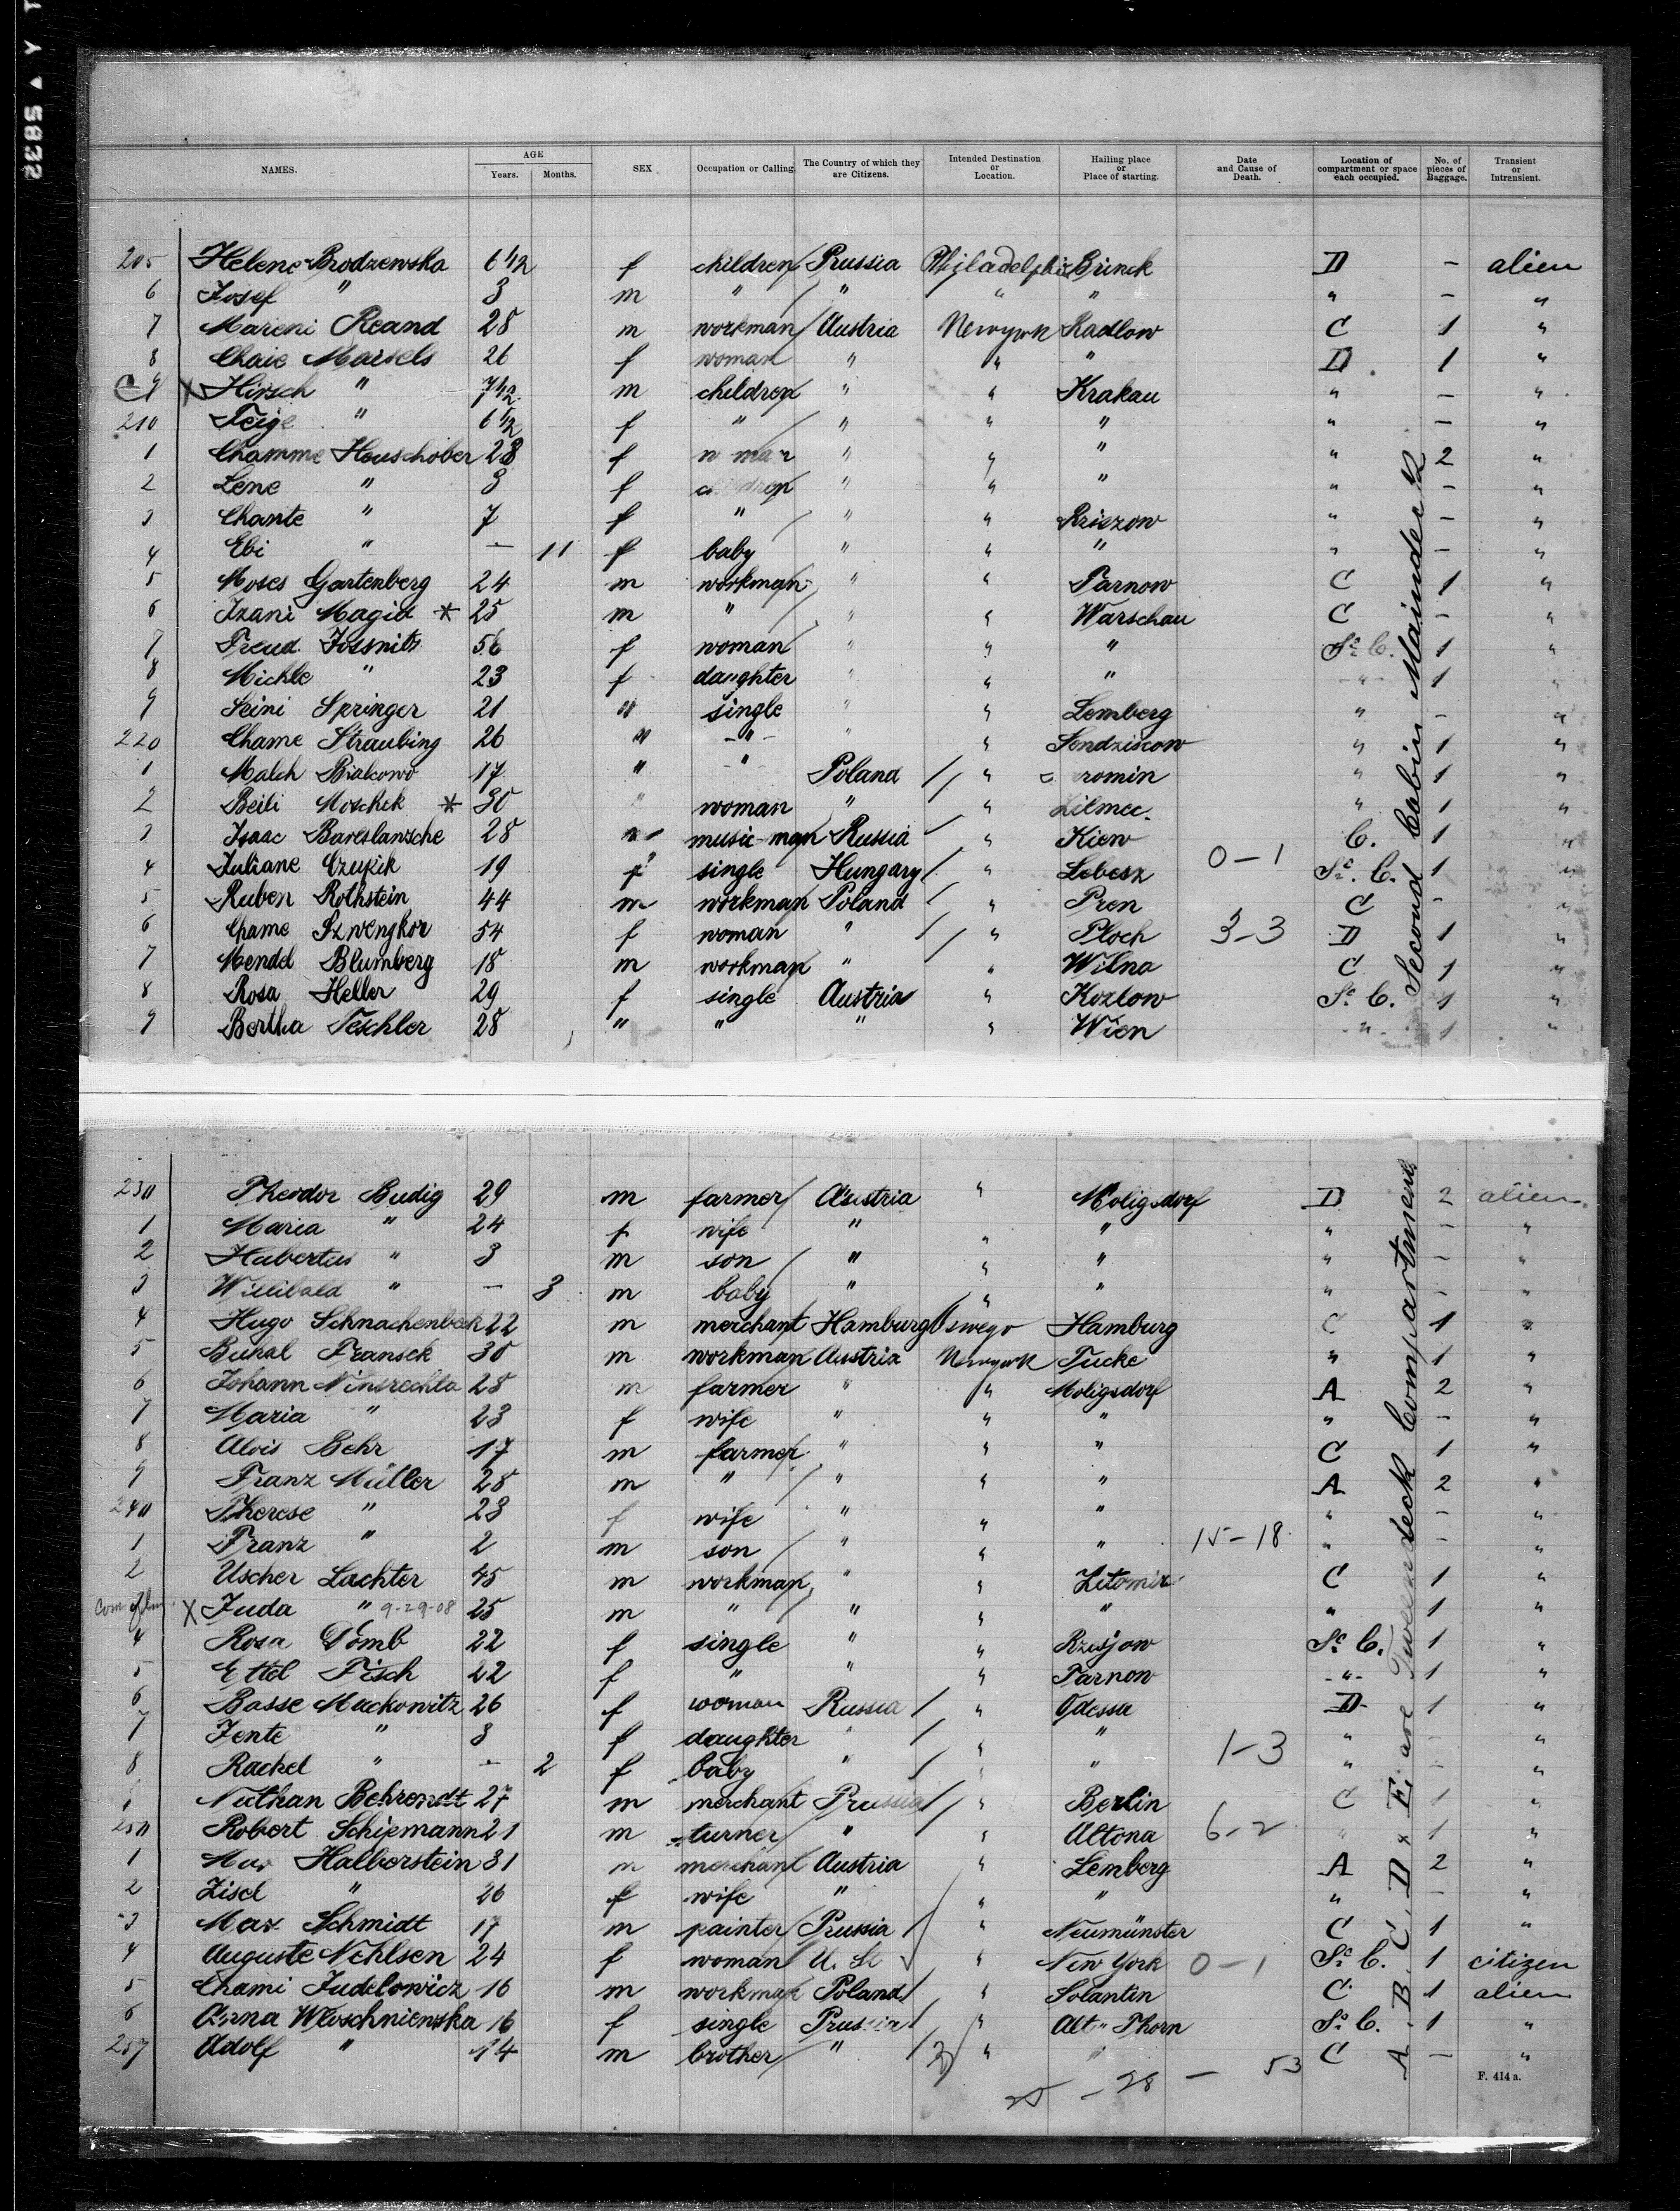 T Y ▲ 5832
NAMES. AGE Years. Months. SEX Occupation or Calling. The Country of which they are Citizens. Intended Destination or Location. Hailing place or Place of starting. Date and Cause of Death. Location of compartment or space each occupied. No. of pieces of Baggage. Transient or Intransient.
205 Helene Brodzewska 6 1/2 f children Prussia Philadelphia Brinck D - alien
6 Josef " 3 m " " " " " - "
7 Mareni Reand 28 m workman Austria Newyork Radlow C 1 "
8 Chaie Maisels 26 f woman " " " D 1 "
9 X Hirsch " 7 1/2 m children " " Krakau " - "
210 Feige " 6 1/2 f " " " " " - "
1 Chamme Heuschober 28 f " " " " 2 "
2 Lene " 3 f children " " " " - "
3 Chante " 7 f " " " Rriezow " - "
4 Ebi " - 11 f baby " " " " - "
5 Moses Gartenberg 24 m workman " " Tarnow C 1 "
6 Izani Magid * 25 m " " " Warschau C - "
7 Freud Jossnitz 56 f woman " " " Sc. C. 1 "
8 Michle " 23 f daughter " " " -"- 1 "
9 Seini Springer 21 " single " " Lemberg " - "
220 Chame Straubing 26 " -"- " " Sendziscow " 1 "
1 Malch Bialcowo 17 " " Poland " romin " 1 "
2 Beili Moschek * 30 woman " " Lilmec. " 1 "
3 Isaac Bareslansche 28 music-man Russia " Kiew C. 1 "
4 Juliane Czujkik 19 f single Hungary " Lebesz 0-1 Sc. C. 1 "
5 Ruben Rothstein 44 m workman Poland " Pren C - "
6 Chame Szwengkor 54 f woman " " Ploch 3-3 D 1 "
7 Mendel Blumberg 18 m workman " " Wilna C 1 "
8 Rosa Heller 29 f single Austria " Kozlow Sc. C. 1 "
9 Bertha Teschler 28 " " " " Wien -"- 1 "
230 Theodor Budig 29 m farmer Austria " Moligsdorf D 2 alien
1 Maria " 24 f wife " " " " - "
2 Hubertus " 3 m son " " " " - "
3 Willibald " - 3 m baby " " " " - "
4 Hugo Schnachenbek 22 m merchant Hamburg Oswego Hamburg C 1 "
5 Buhal Fransek 30 m workman Austria Newyork Tucke " 1 "
6 Johann Ninsrechla 28 m farmer " " Moligsdorf A 2 "
7 Maria " 23 f wife " " " " - "
8 Alois Behr 17 m farmer " " " C 1 "
9 Franz Müller 28 m " " " " A 2 "
240 Therese " 23 f wife " " " " - "
1 Franz " 2 m son " " " 15-18 " - "
2 Uscher Lachter 45 m workman " " Zitomir C 1 "
X Juda " 9-29-08 25 m " " " " " 1 "
4 Rosa Domb 22 f single " " Rzesjow Sc. C. 1 "
5 Ettel Fisch 22 f " " " Tarnow -"- 1 "
6 Basse Mackowitz 26 f woman Russia " Odessa D 1 "
7 Jente " 3 f daughter " " " 1-3 " - "
8 Rachel " - 2 f baby " " " " - "
Nathan Behrendt 27 m merchant Prussia " Berlin C 1 "
250 Robert Schiemann 21 m turner " " Altona 6-2 " 1 "
1 Max Halberstein 31 m merchant Austria " Lemberg A 2 "
2 Zisel " 26 f wife " " " " - "
3 Max Schmidt 17 m painter Prussia " Neumünster C 1 "
4 Auguste Nehlsen 24 f woman U. St " New York 0-1 Sc. C. 1 citizen
5 Chami Judelowicz 16 m workman Poland " Solantin C 1 alien
6 Anna Wloschniewska 16 f single Prussia " Alt-Thorn Sc. C. 1 "
257 Adolf " 14 m brother " " " C - "
25 - 28 - 53
F. 414 a.
A. B. C. D & E are Tweendeck Compartment Second Cabin Maindeck